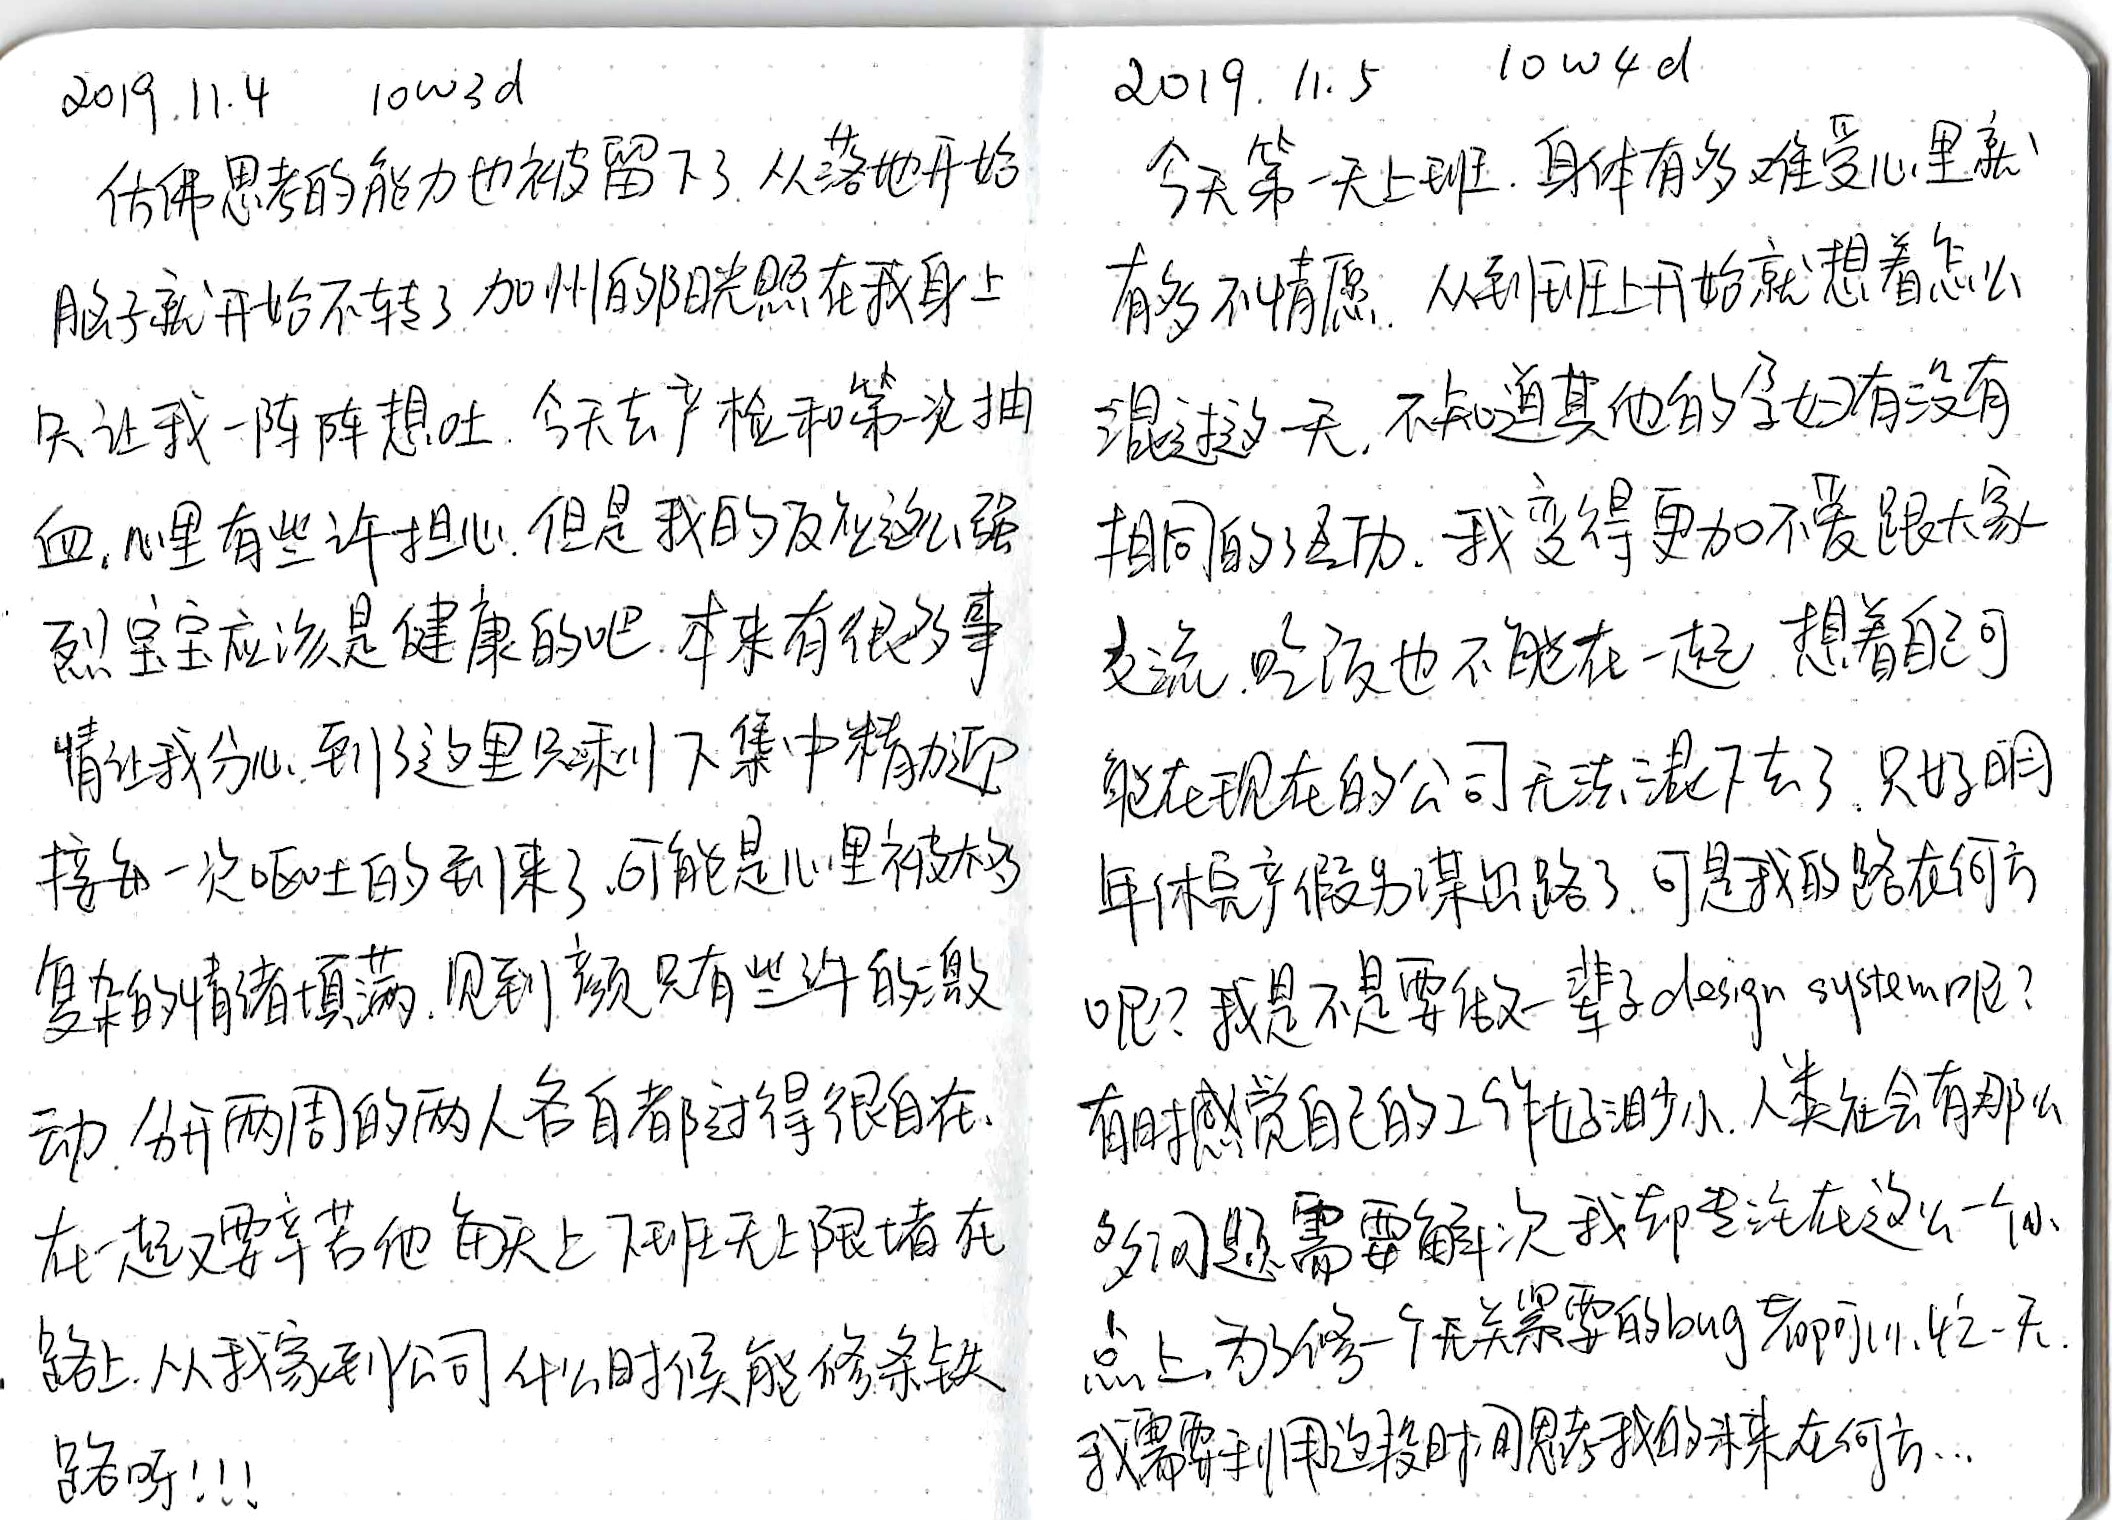 2019.11.4 10w3d
仿佛思考的能力也被留下了.从落地开始
脑子就开始不转了.加州的阳光照在我身上
只让我一阵阵想吐.今天去产检和第一次抽
血,心里有些许担心.但是我的反应这么强
烈宝宝应该是健康的吧.本来有很多事
情让我分心,到了这里只剩下集中精力迎
接每一次呕吐的到来了,可能是心里被太多
复杂的情绪填满,见到颜只有些许的激
动.分开两周的两人各自都过得很自在、
在一起又要辛苦他每天上下班无上限堵在
路上.从我家到公司什么时候能修条铁
路呀!!!
2019.11.5 10w4d
今天第一天上班.身体有多难受心里就
有多不情愿.从到班上开始就想着怎么
混过这一天,不知道其他的孕妇有没有
相同的活动.我变得更加不爱跟大家
交流.吃饭也不能在一起.想着自己可
能在现在的公司无法混下去了.只好明
年休完产假另谋出路了.可是我的路在何方
呢?我是不是要做一辈子design system呢?
有时感觉自己的工作好渺小.人类社会有那么
多问题需要解次我却专注在这么一个小
点上,为了修一个无关紧要的bug都可以忙一天.
我需要利用这段时间思考我的未来在何方...